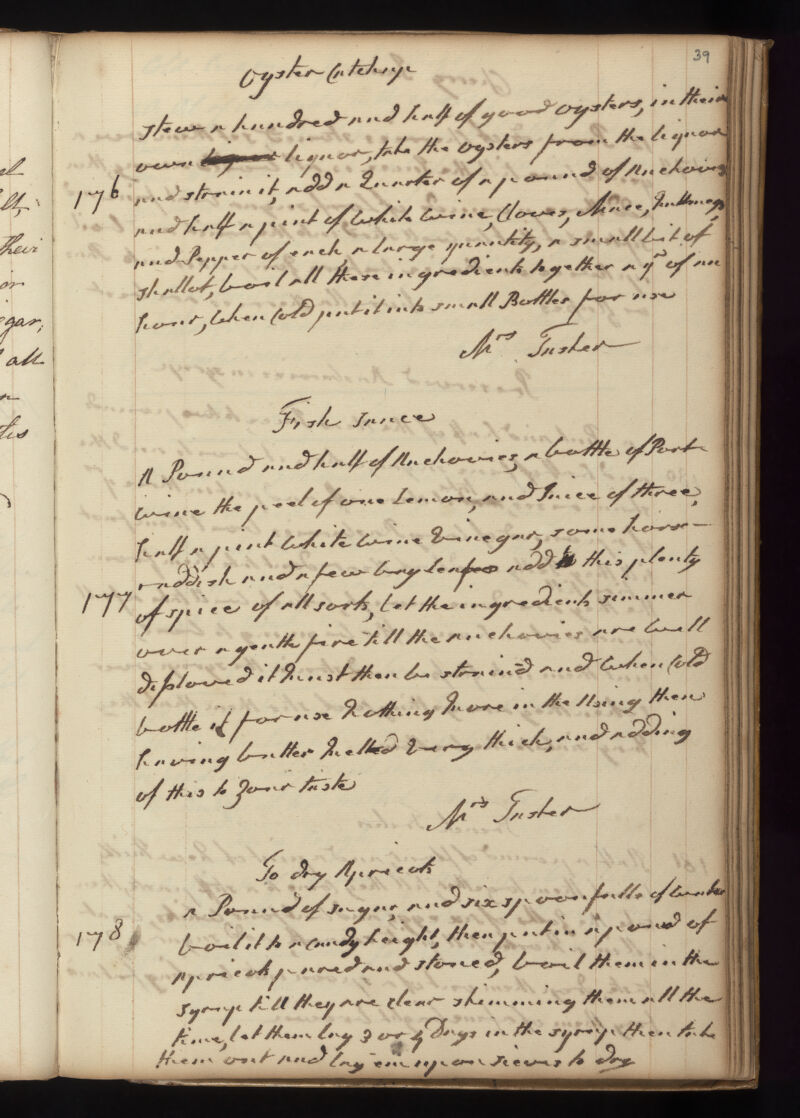 39
Oyster Catchup
stew a hundred and half of good oysters, in their
own liquor, take the oysters from the liquor
176
and strain it, add a Quarter of a pound of Anchovies
and half a pint of White wine, Cloves, Mace, Nuttmegs,
and Pepper of each, a large quantity, a small bit of
shallot, boil all these ingredients together a qr of an
hour, When Cold put it into small Bottles for use
Mrs Tusher
Fish sauce
A Pound and half of Anchovies, a bottle of Port
wine the peel of one Lemon, and Juice of three,
half a pint White wine Vinegar, some horse-
raddish and a few bay leafes add to this plenty
177
of spice of all sorts, let the ingredients simmer
over a gentle fire till the anchovies are well
disolved it must then be strain'd and When Cold
bottle it for use Nothing More in the Using then
having butter Melted Very thick, and adding
of this to your taste
Mrs Tusher
To dry Apricots
a Pound of sugar, and six spoonfulls of water
178
boil it to a candy height, then put in a pound of
apricots pared and stoned, boil them in the
syrop till they are clear skimming them all the
time, let them lay 3 or 4 Days in the syrop then take
them out and lay 'em upon sieves to dry